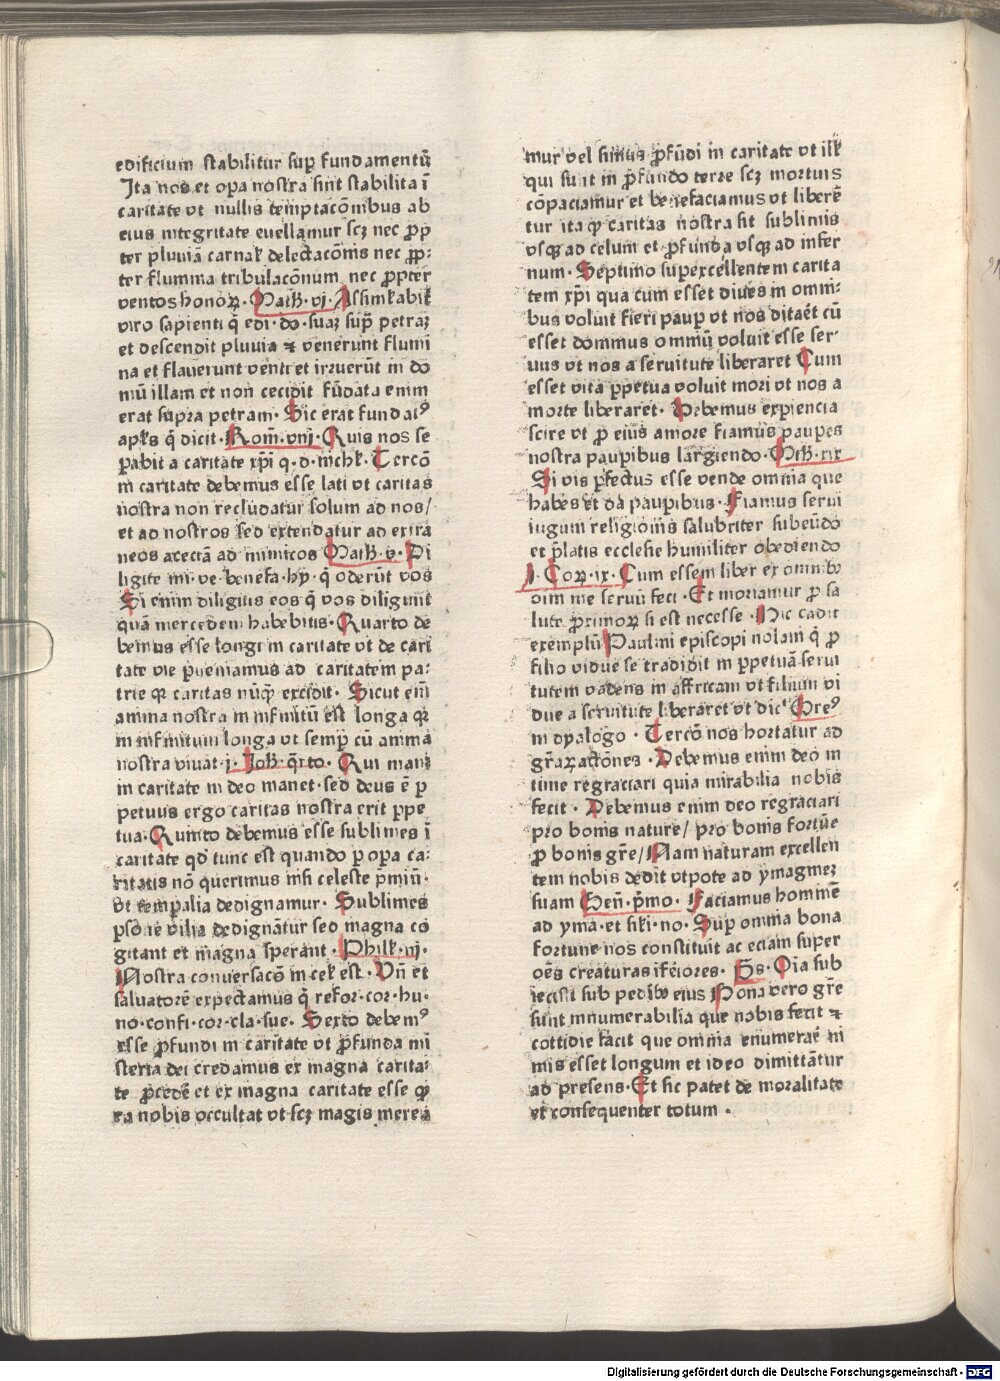 edificium stabilitur sup̱ fundamentū
Ita nos et oṗa nostra sint stabilita ī
caritate vt nullis temptacōnibus ab
eius integritate euellamur scꝫ nec ꝓp
ter pluuiā carnal' delectacōnis nec ꝓp-
ter flumina tribulacōnum nec ꝓpter
ventos honoꝝ. Math. vj. Assimilabit'
viro sapienti q̄ edi. do. suaꝫ sup̄ petraꝫ
et descendit pluuia ⁊ venerunt flumi
na et flauerunt venti et irruerūt in do
mū illam et non cecidit fūdata enim
erat supra petram. Sic erat fundatꝰ
apl's q̄ dicit. Rom̄. viij. Quis nos se
ꝑabit a caritate xp̄i q. d. nichil'. Tercō
in caritate debemus esse lati vt caritas
nostra non recludatur solum ad nos/
et ad nostros sed extendatur ad extra
neos aecectā ad inimicos Math. v. Di
ligite ini. ve. benefa. hy. q̄ oderūt vos
Si enim diligitis eos q̄ vos diligunt
quā mercedem habebitis. Quarto de
bemus esse longi in caritate vt de cari
tate vie ꝑueniamus ad caritatem pa-
trie qꝛ caritas nūqͣ excidit. Sicut em̄
anima nostra in infinitū est longa qꝛ
in infinitum longa vt semꝑ cū anima
nostra viuat. j. Joh. q̄rto. Qui mani
in caritate in deo manet. sed deus ē ꝑ
petuus ergo caritas nostra erit ꝑpe
tua. Quinto debemus esse sublimes ī
caritate qd̄ tunc est quando ꝑ oꝑa ca-
ritatis nō querimus nisi celeste p̄miū.
Vt temꝑalia dedignamur. Sublimes
ꝑsōne vilia dedignātur sed magna co
gitant et magna sperant. Philip̄. iij.
Nostra conuersacō in cel' est. Vn̄ et
saluatorē expectamus q̄ refor. cor. hu.
no. confi. cor. cla. sue. Sexto debemꝰ
esse ꝓfundi in caritate vt ꝓfunda mi
steria dei credamus ex magna carita-
te ꝓcedē et ex magna caritate esse ꝙ
ea nobis occultat vt scꝫ magis merea
mur vel simus ꝓfūdi in caritate vt ill'
qui sunt in ꝓfundo terre scꝫ mortuis
cōpaciamur et benefaciamus vt liberē
tur ita ꝙ caritas nostra sit sublimis
vsqꝫ ad celum et ꝓfunda vsqꝫ ad infer
num. Septimo suꝑexcellentem carita
tem xp̄i qua cum esset diues in omni-
bus voluit fieri pauꝑ vt nos ditaēt cū
esset dominus omniū voluit esse ser-
uus vt nos a seruitute liberaret Cum
esset vita ꝑpetua voluit mori vt nos a
morte liberaret. Debemus exꝑiencia
scire vt ꝓ eius amore fiamus pauꝑes
nostra pauꝑibus largiendo. Mth. xix
Si vis ꝑfectus esse vende omnia que
habes et da pauꝑibus. Fiamus serui
iugum religionis salubriter subeūdo
et p̄latis ecclesie humiliter obediendo
j. Coꝝ. ix. Cum essem liber ex omnibꝫ
oim me seruū feci. Et moriamur ꝓ sa
lute ꝓximoꝝ si est necesse. Hic cadit
exemplū Paulini episcopi nolani q̄ ꝓ
filio vidue se tradidit in ꝑpetuā serui
tutem vadens in affricam vt filium vi
due a seruitute liberaret vt dic' Greꝰ
in dyalogo. Tercō nos hortatur ad
gr̄aꝝ actōnes. Debemus enim deo in
time regraciari quia mirabilia nobis
fecit. Debemus enim deo regraciari
pro bonis nature/ pro bonis fortūe
ꝓ bonis gr̄e/ Nam naturam excellen
tem nobis dedit vtpote ad ymagineꝫ
suam Gen̄. p̄mo. Faciamus hominē
ad yma. et sil'i. no. Suꝑ omnia bona
fortune nos constituit ac eciam super
oēs creaturas īferiores. p̄s. Oīa sub
iecisti sub pedibꝫ eius Bona vero gr̄e
sunt innumerabilia que nobis fecit ⁊
cottidie facit que omnia enumerare ni
mis esset longum et ideo dimittātur
ad presens. Et sic patet de moralitate
et consequenter totum.
Digitalisierung gefördert durch die Deutsche Forschungsgemeinschaft - DFG